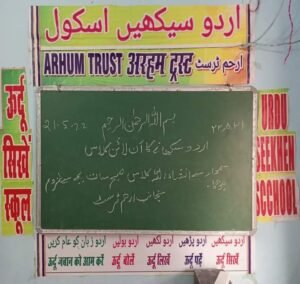 اردو سیکھیں اسکول
ARHUM TRUST अरहम ट्रस्ट ارحم ٹرسٹ
उर्दू सिखें स्कूल
URDU SEEKHEN SCCHOOL
21.5.22
بسم اللہ الرحمٰن الرحیم
اردو سکھانے کا آن لائن کلاس
سوموار سے انشاء اللہ کلاس شام سات بجے سے
ہوگا۔
منجانب ارحم ٹرسٹ
اردو سیکھیں اردو پڑھیں اردو لکھیں اردو بولیں اردو زبان کو عام کریں
उर्दू ज़बान को आम करें उर्दू बोलें उर्दू लिखें उर्दू पढ़ें उर्दू सिखें